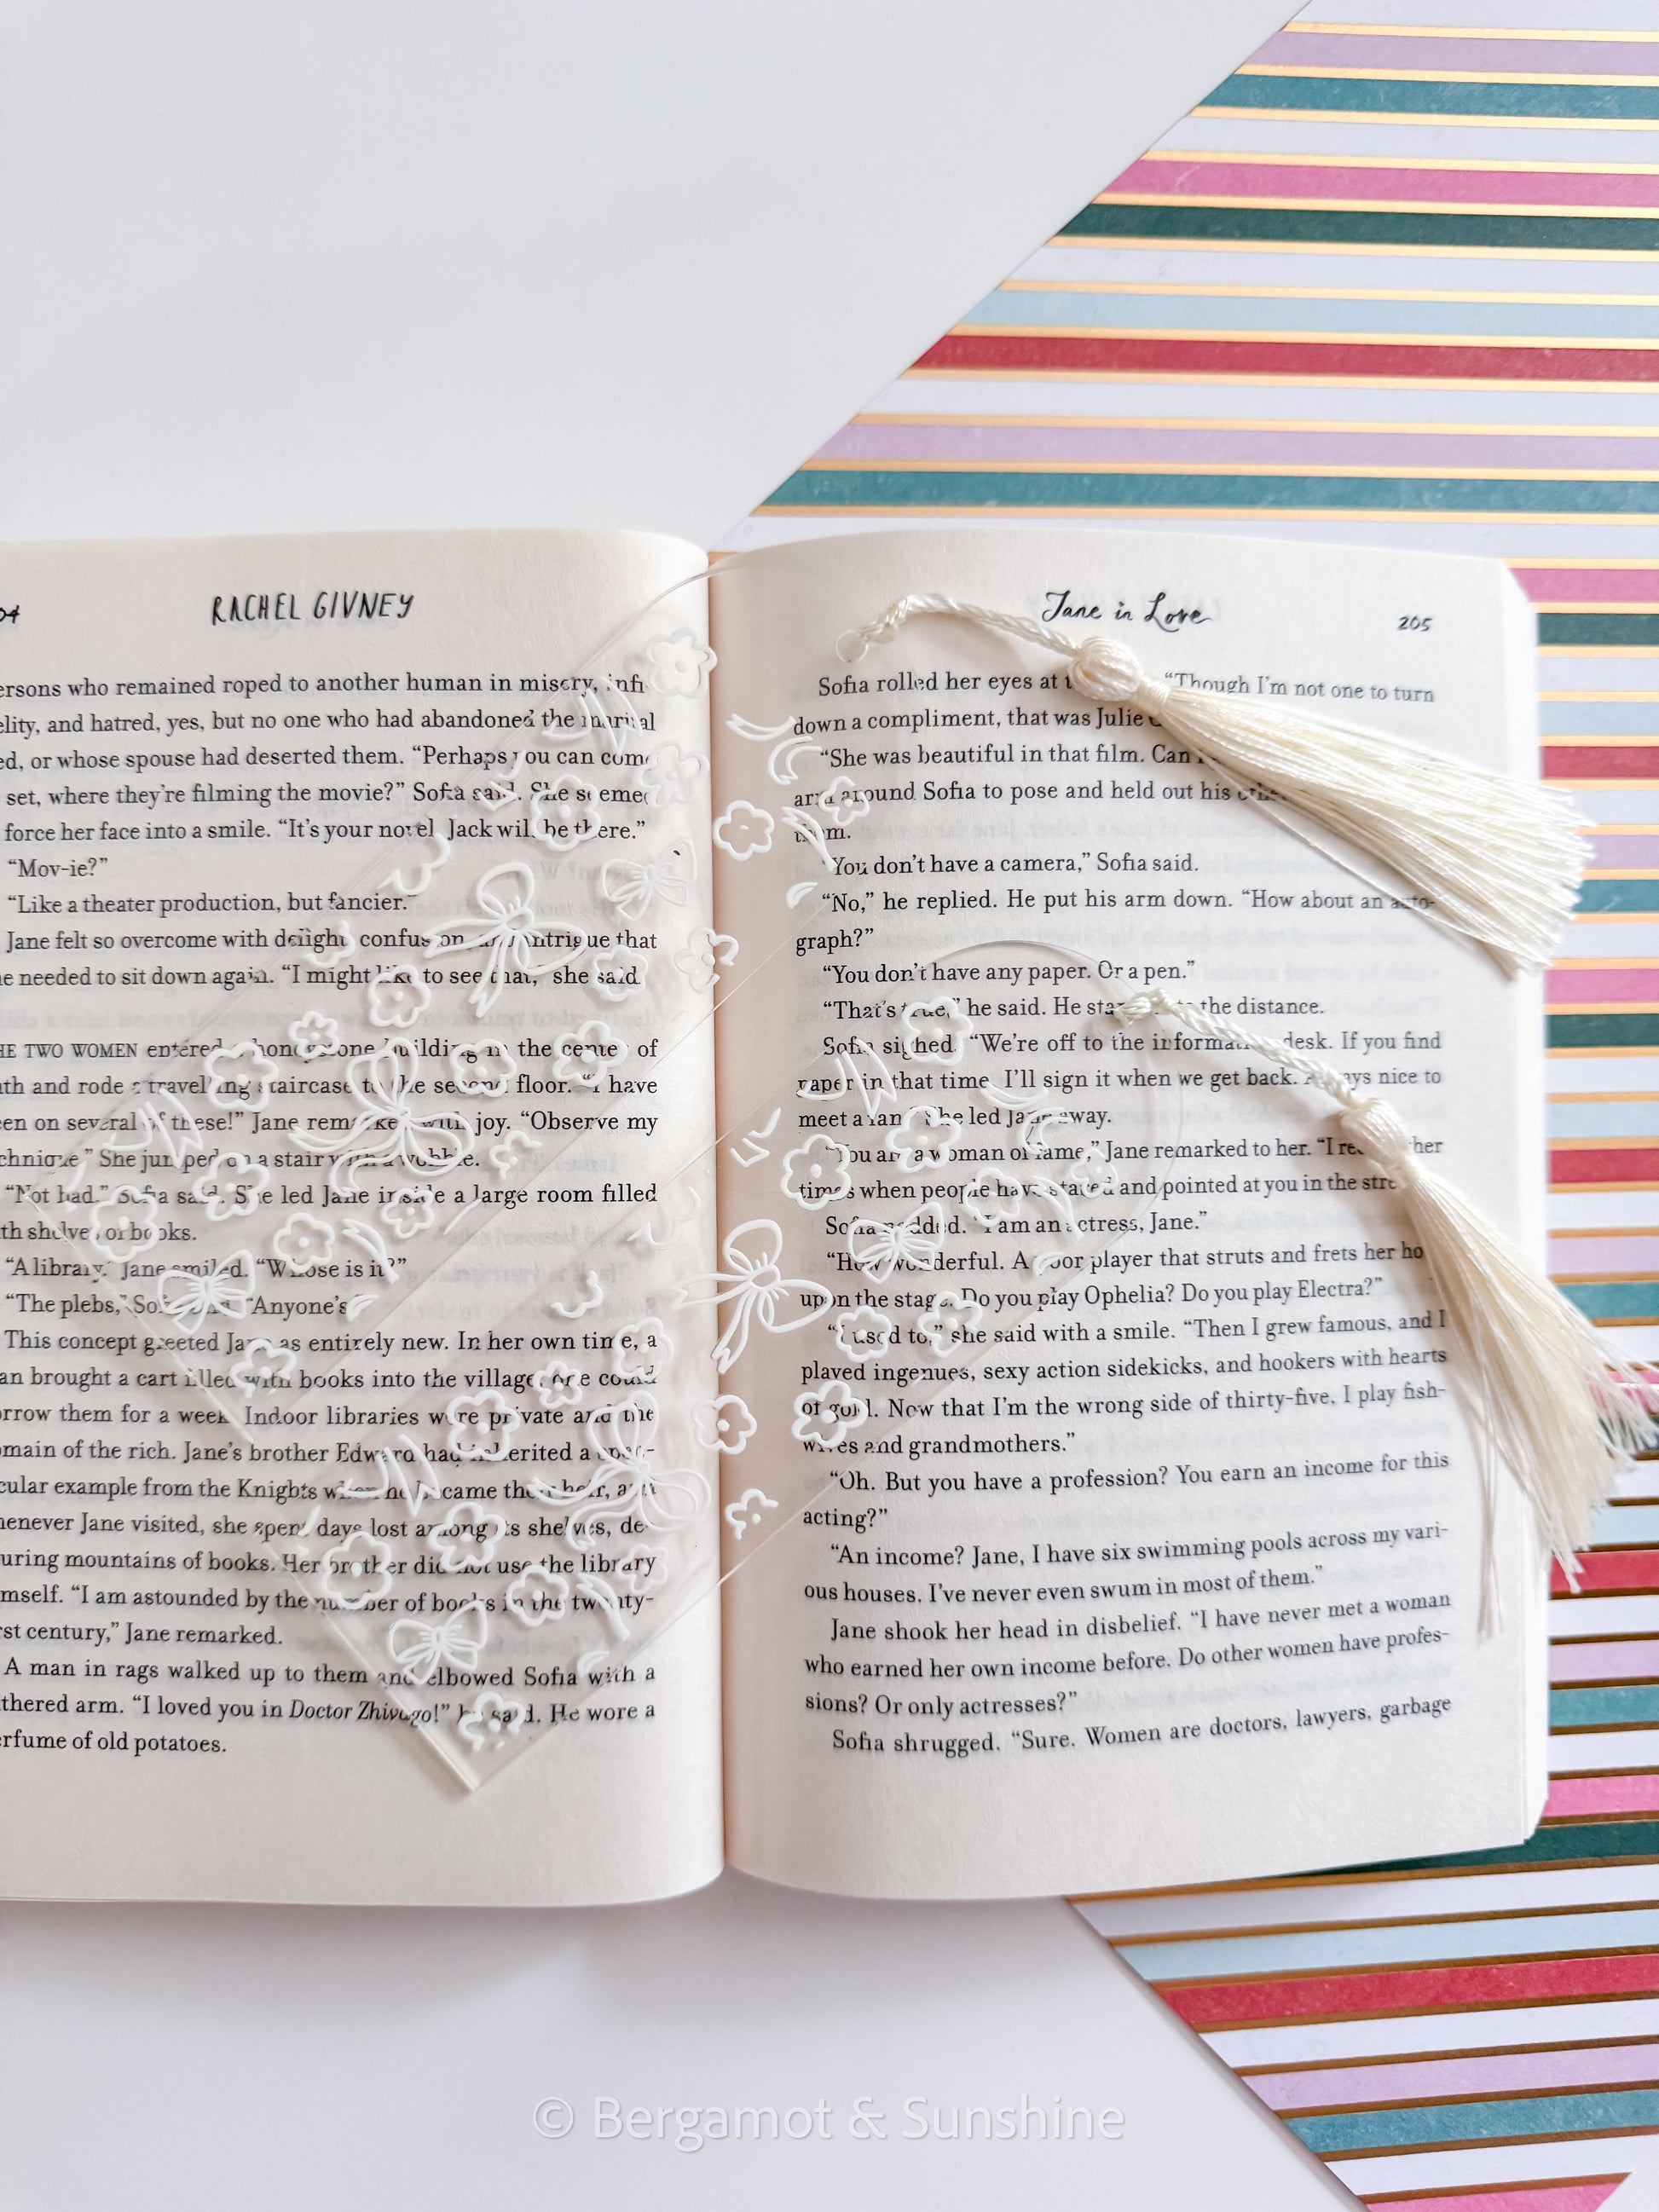 04
RACHEL GIVNEY
ersons who remained roped to another human in misery, infi-
elity, and hatred, yes, but no one who had abandoned the marital
ed, or whose spouse had deserted them. “Perhaps you can come
set, where they’re filming the movie?” Sofia said. She seemed
force her face into a smile. “It’s your novel. Jack will be there.”
“Mov-ie?”
“Like a theater production, but fancier.”
Jane felt so overcome with delight, confusion, and intrigue that
e needed to sit down again. “I might like to see that,” she said.
HE TWO WOMEN entered a honeystone building in the center of
th and rode a travelling staircase to the second floor. “I have
en on several of these!” Jane remarked with joy. “Observe my
chnique.” She jumped on a stair with a wobble.
“Not bad.” Sofia said. She led Jane inside a large room filled
th shelves of books.
“A library.” Jane smiled. “Whose is it?”
“The plebs,” Sofia said. “Anyone’s.
This concept greeted Jane as entirely new. In her own time, a
an brought a cart filled with books into the village; one could
rrow them for a week. Indoor libraries were private and the
main of the rich. Jane’s brother Edward had inherited a spec-
cular example from the Knights when he became their heir, and
henever Jane visited, she spent days lost among its shelves, de-
uring mountains of books. Her brother did not use the library
mself. “I am astounded by the number of books in the twenty-
rst century,” Jane remarked.
A man in rags walked up to them and elbowed Sofia with a
thered arm. “I loved you in Doctor Zhivago!” he said. He wore a
erfume of old potatoes.
Jane in Love
205
Sofia rolled her eyes at “Though I’m not one to turn
down a compliment, that was Julie
“She was beautiful in that film. Can
arm around Sofia to pose and held out his
them.
“You don’t have a camera,” Sofia said.
“No,” he replied. He put his arm down. “How about an auto-
graph?”
“You don’t have any paper. Or a pen.”
“That’s true,” he said. He the distance.
Sofia sighed. “We’re off to the information desk. If you find
paper in that time, I’ll sign it when we get back. Always nice to
meet a fan.” She led Jane away.
“You are a woman of fame,” Jane remarked to her. “I her
times when people have stared and pointed at you in the
Sofia nodded. “I am an actress, Jane.”
“How wonderful. A poor player that struts and frets her
upon the stage. Do you play Ophelia? Do you play Electra?”
“I used to,” she said with a smile. “Then I grew famous, and I
played ingenues, sexy action sidekicks, and hookers with hearts
of gold. Now that I’m the wrong side of thirty-five, I play fish-
wives and grandmothers.”
“Oh. But you have a profession? You earn an income for this
acting?”
“An income? Jane, I have six swimming pools across my vari-
ous houses. I’ve never even swum in most of them.”
Jane shook her head in disbelief. “I have never met a woman
who earned her own income before. Do other women have profes-
sions? Or only actresses?”
Sofia shrugged. “Sure. Women are doctors, lawyers, garbage
© Bergamot & Sunshine